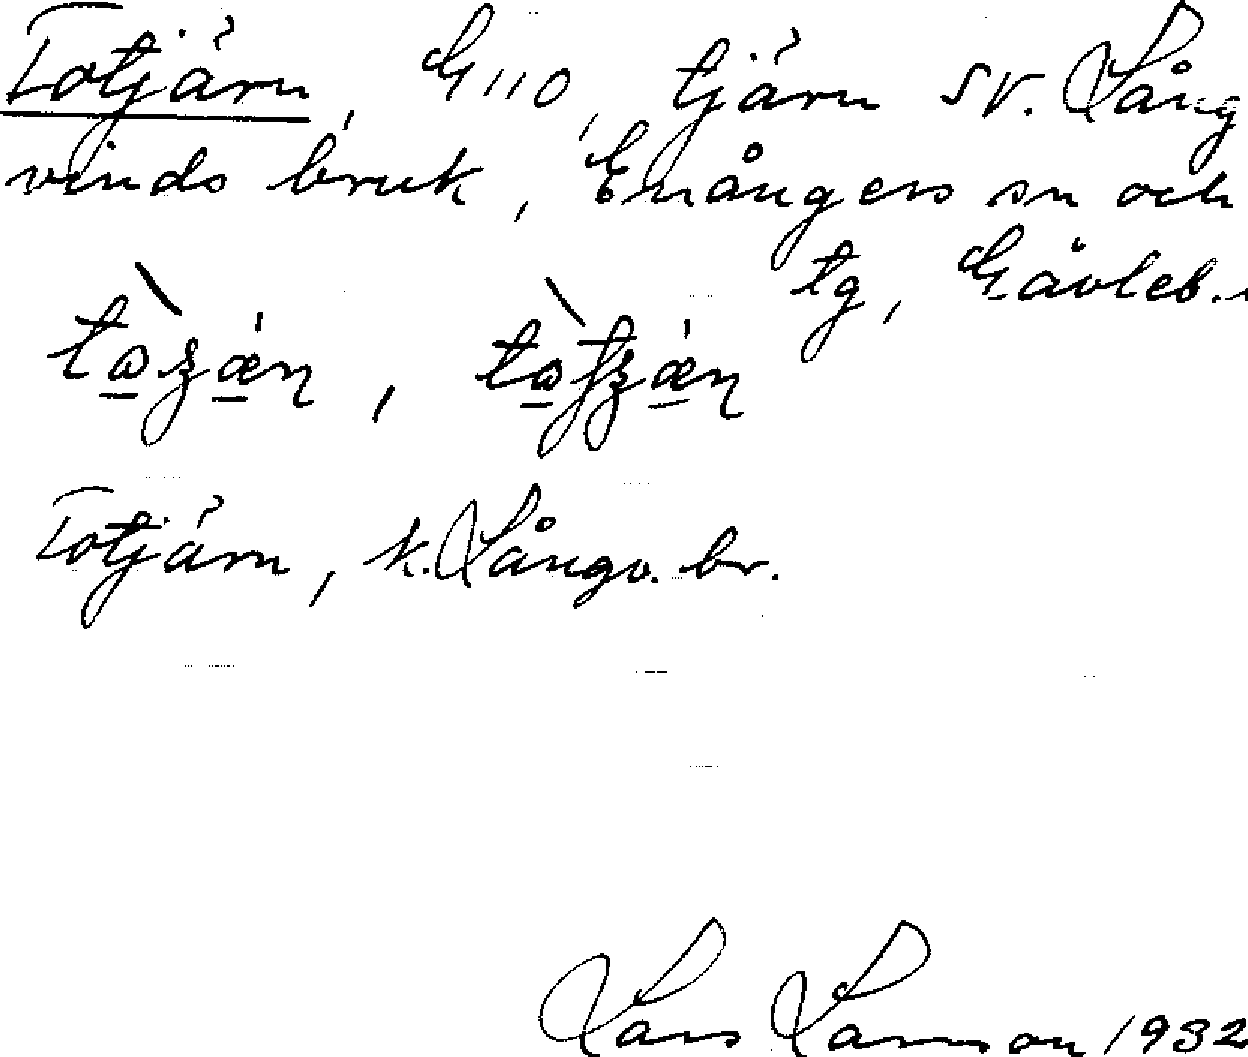 Totjärn, G110, tjärn SV. Lång
vinds bruk, Enångers sn och
tg, Gävleb.
Totjärn, k. Långv. br.
Lars Larsson 1932